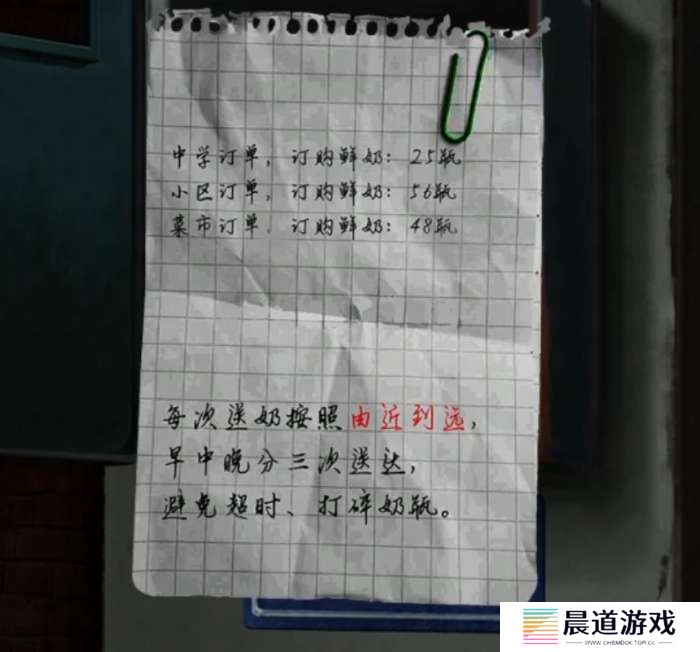 中学订单，订购鲜奶：25瓶
小区订单，订购鲜奶：56瓶
菜市订单，订购鲜奶：48瓶
每次送奶按照由近到远，
早中晚分三次送达，
避免超时、打碎奶瓶。
晨道游戏
WWW.CHEMDOCTOR.CC